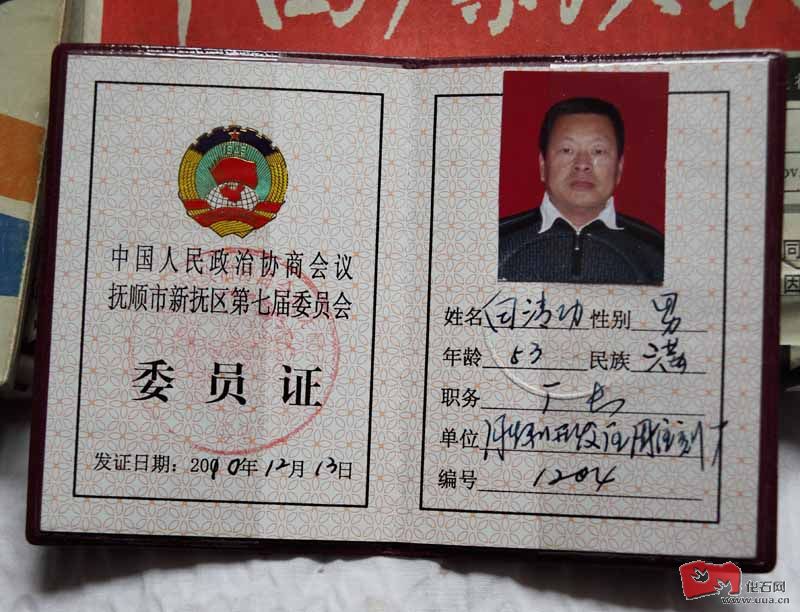 中国人民政治协商会议
抚顺市新抚区第七届委员会
委员证
发证日期：2010年12月13日
姓名 白清功 性别 男
年龄 53 民族 满
职务 厂长
单位
编号 1204
化石网
www.uua.cn